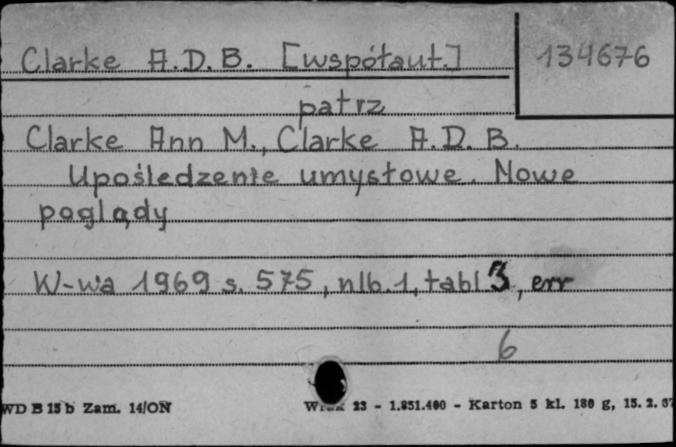 Clarke A.D.B. [współaut.] 134676
patrz
Clarke Ann M., Clarke A.D.B.
Upośledzenie umysłowe. Nowe
poglądy
W-wa 1969 s. 575, nlb. 1, tabl 3, err
6
WD B 15 b Zam. 14/ON 23 - 1.851.400 - Karton 5 kl. 180 g, 15. 2. 67